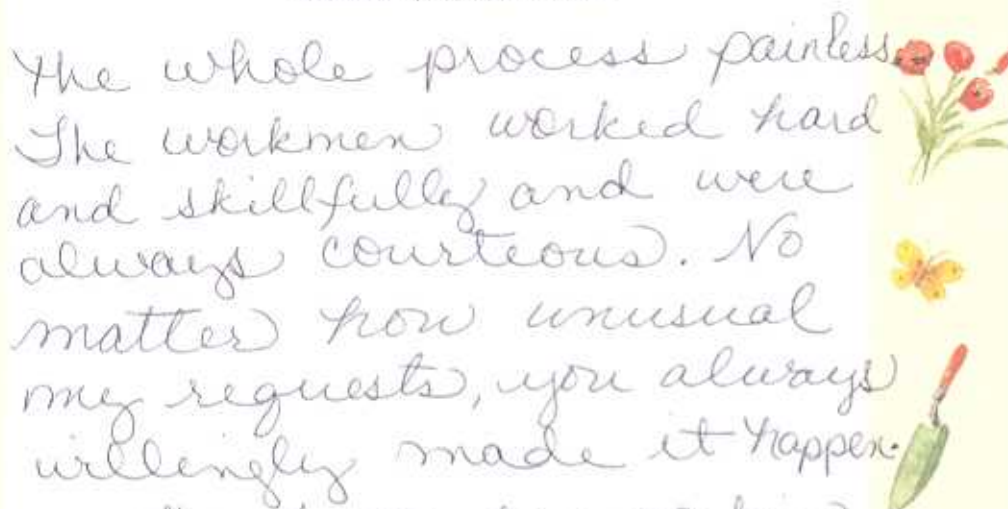 the whole process painless.
The workmen worked hard
and skillfully and were
always courteous. No
matter how unusual
my requests, you always
willingly made it happen.